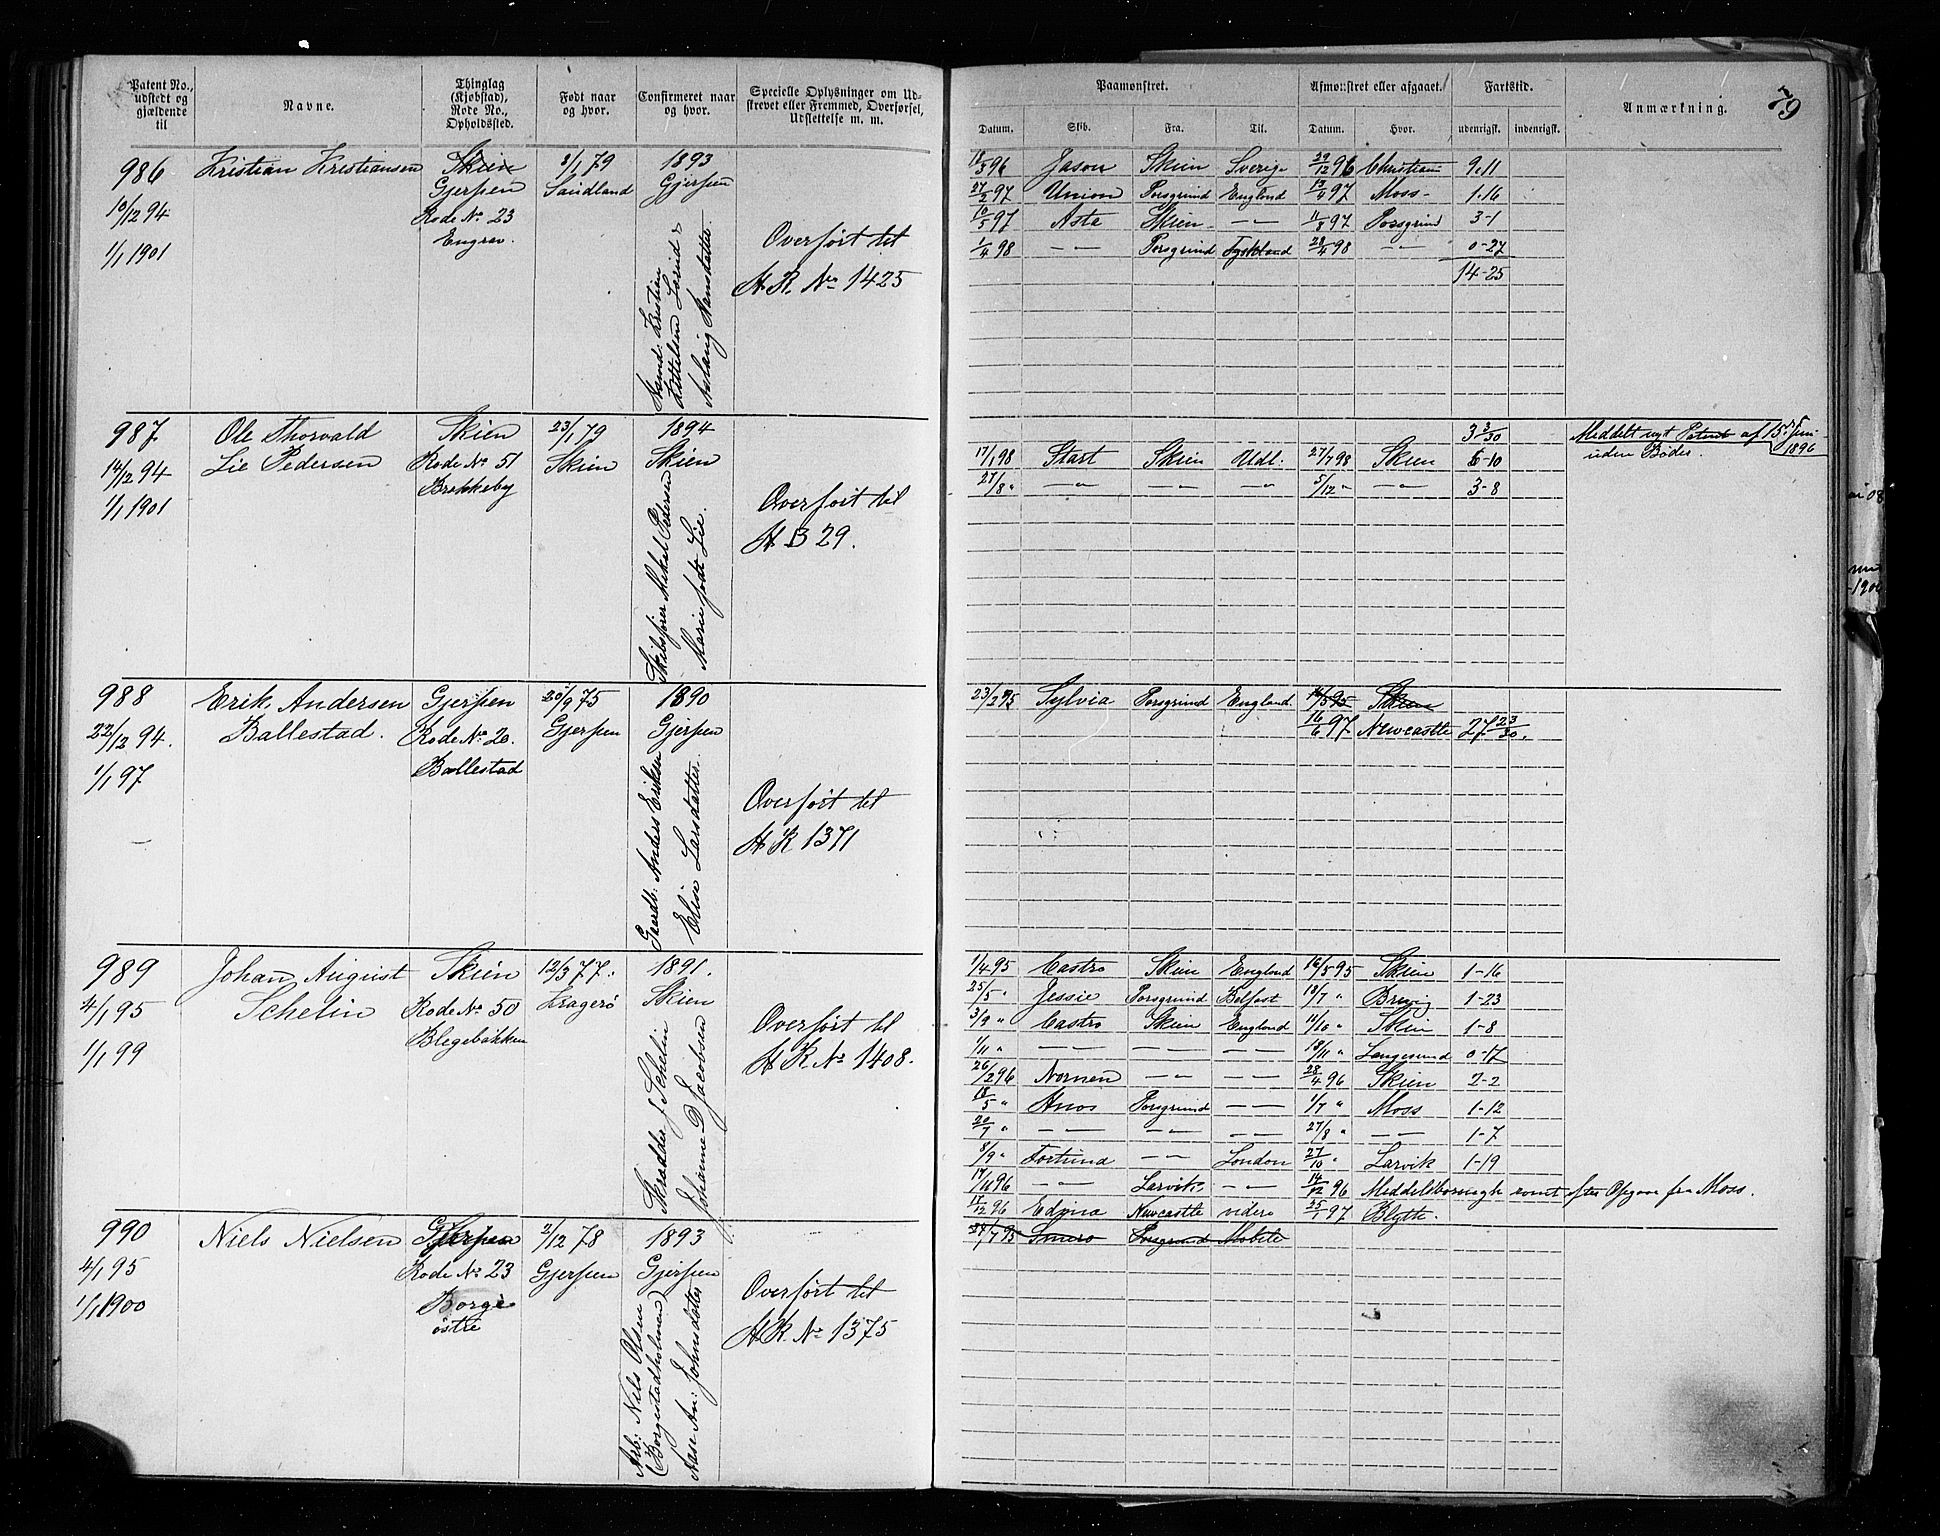 Patent No., udstedt og gjældende til
Navne.
Thinglag (Kjøbstad), Rode No., Opholdssted.
Født naar og hvor.
Confirmeret naar og hvor.
Specielle Oplysninger om Udskrevet eller Fremmed, Overførsel, Udslettelse m. m.
986
10/12 94
1/1 1901
Kristian Kristiansen
Skien
Gjerpen
Rode No 23
Engrav.
1/1 79
Sandland
1893
Gjerpen
Aslaug Hansdatter.
Overført til
A. K. No 1425
987
14/12 94
1/1 1901
Ole Thorvald
Lie Pedersen
Skien
Rode No 51
Brekkeby
23/1 79
Skien
1894
Skien
Skibsfører Mikal Pedersen
Marie født Lie.
Overført til
A B 29.
988
22/12 94.
1/1 97
—
Erik Andersen
Ballestad.
Gjerpen
Rode No 20.
Ballestad
20/9 75
Gjerpen
1890
Gjerpen
Gaardb: Anders Eriksen
Elise Larsdatter.
Overført til
A K 1371
989
4/1 95
1/1 99
Johan August
Schelin
Skien
Rode No 50
Blegebakken
12/3 77.
Kragerø
1891.
Skien
Skrædder J Schelin
Johanne D Jacobsen
Overført til
A K No 1408.
990
4/1 95
1/1 1900
Niels Nielsen
Gjerpen
Rode No 23
Borge
østre
2/12 78
Gjerpen
1893
Gjerpen
Arb: Nils Olsen
(Borgestadholmen)
Aase An: Johnsdatter
Overført til
A K. No 1375
79
Paamønstret.
Afmønstret eller afgaaet.
Fartstid.
Anmærkning.
Datum. Skib. Fra. Til. Datum. Hvor. udenrigsk. indenrigsk.
Jason Skien Sverige 29/12 96 Christiania 9.11
27/2 97 Union Porsgrund England 97 Moss 1.16
10/5 97 Asta Skien — " — 11/8 97 Porsgrund 3-1
1/4 98 — " — Porsgrund Tyskland 28/4 98 — " — 0-27
14-25
3 3/30 Meddelt nyt Patent af 15de Juni 1896
uden Bøder.
17/1 98 Start Skien Udl. 27/7 98 Skien 6-10
27/8 " — " — — " — — " — 5/12 " — " — 3-8
23/2 95 Sylvia Porsgrund England 95 Skien
16/6 97 Newcastle 27 23/30.
1/4 95 Castro Skien England 16/5 95 Skien 1-16
25/5 " Jessie Porsgrund Belfast 18/7 " Brevig 1-23
3/9 " Castro Skien England 11/10 " Skien 1-8
1/11 " — " — — " — — " — 18/11 " Langesund 0-17
26/2 96 Nornen — " — — " — 28/4 96 Skien 2-2
18/5 " Amos Porsgrund — " — 1/7 " Moss 1-12
20/7 " — " — — " — — " — 27/8 " — " — 1-7
8/9 " Fortuna — " — London 27/10 " Larvik 1-19
17/11 96 — " — Larvik — " — 14/12 96 Middelsborough rømt efter Opgave fra Moss.
17/12 96 Edina Newcastle videre 23/1 97 Blyth.
Porsgrund Mobile